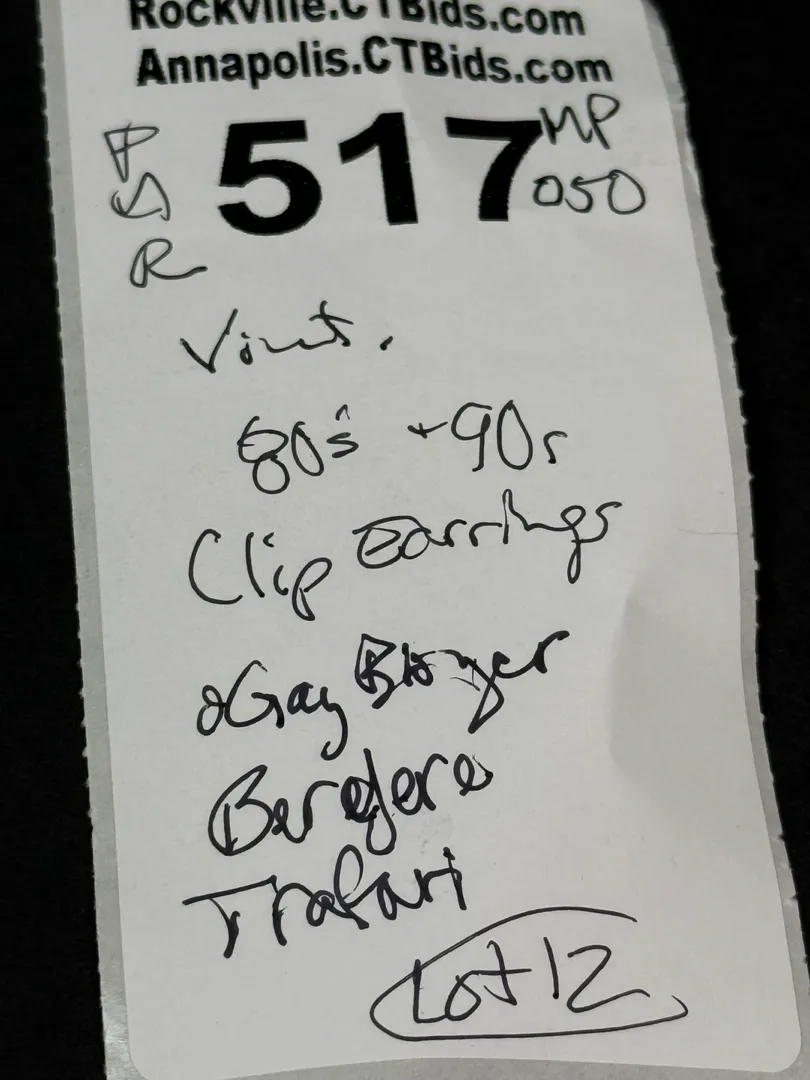 Rockville.CTBids.com
Annapolis.CTBids.com
517
MP
050
R
Vint.
80's + 90s
Clip Earrings
Gay Boyer
Bergere
Trafari
Lot 12